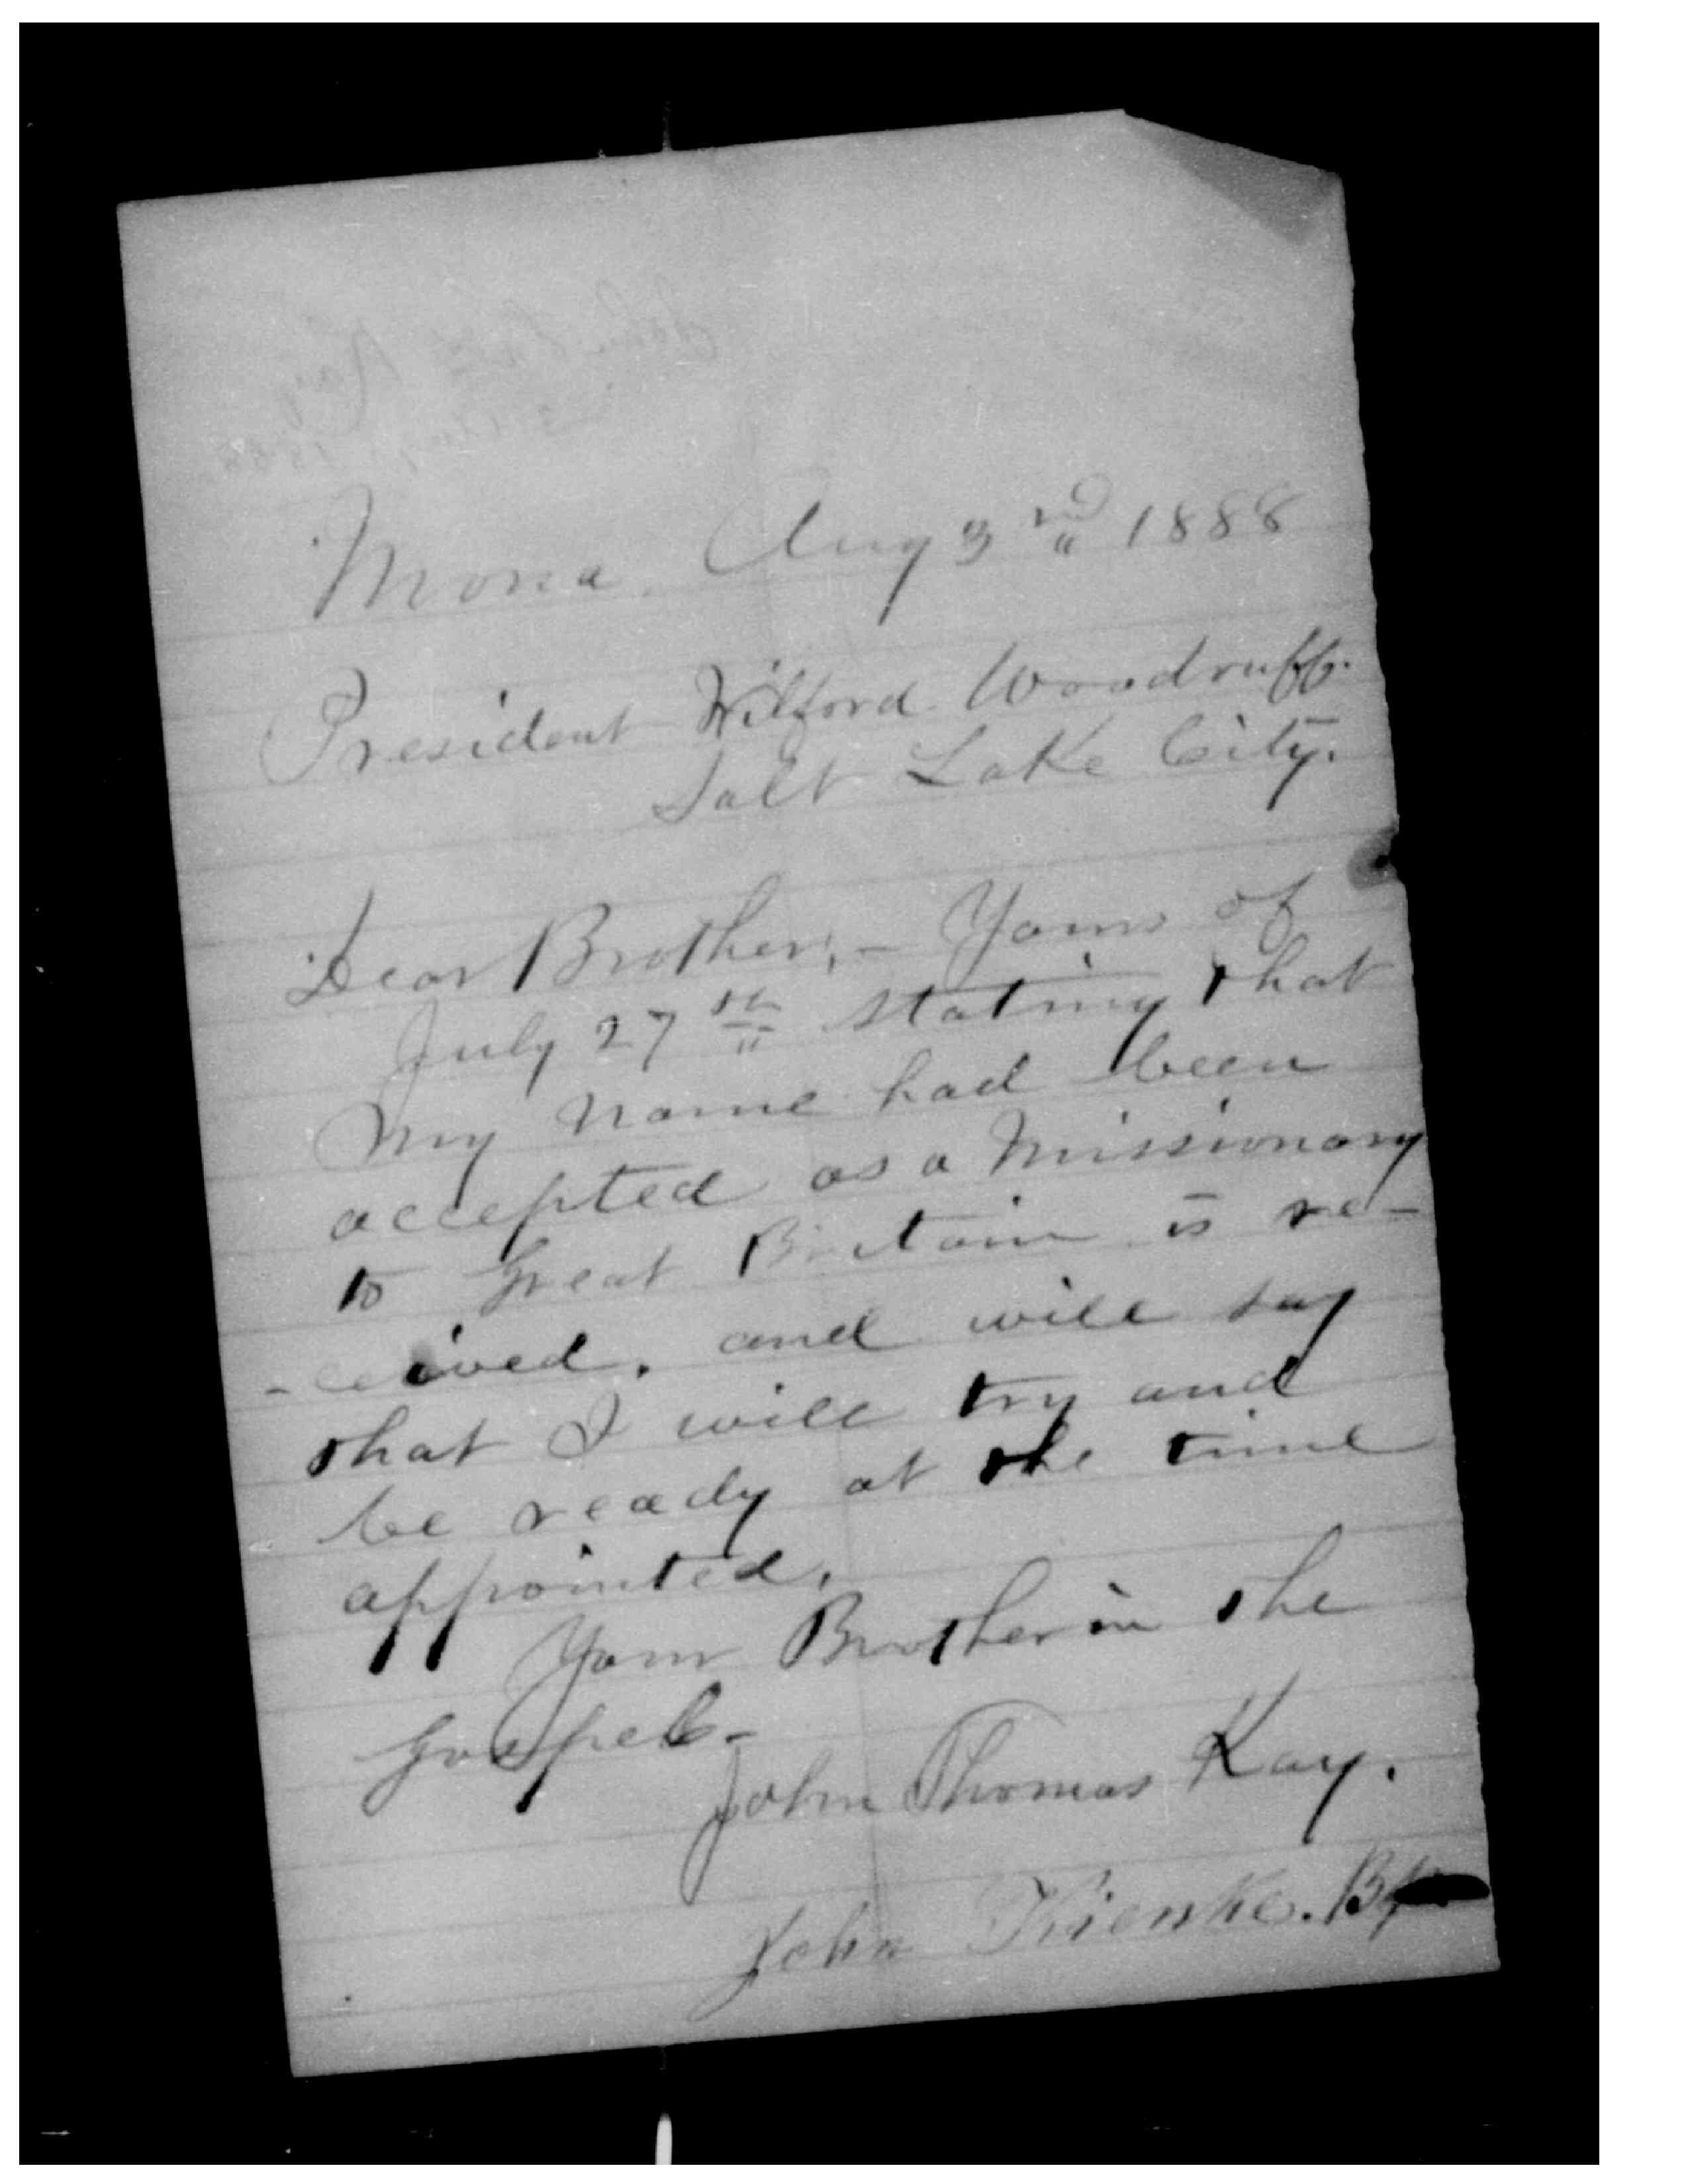 Mona. Aug 3rd 1888
President Wilford Woodruff.
Salt Lake City.
Dear Brother;- Yours of
July 27th stating that
my name had been
accepted as a missionary
to Great Britain is re-
-ceived. and will say
that I will try and
be ready at the time
appointed.
Your Brother in the
Gospel-
John Thomas Kay.
John Kienke. Bp